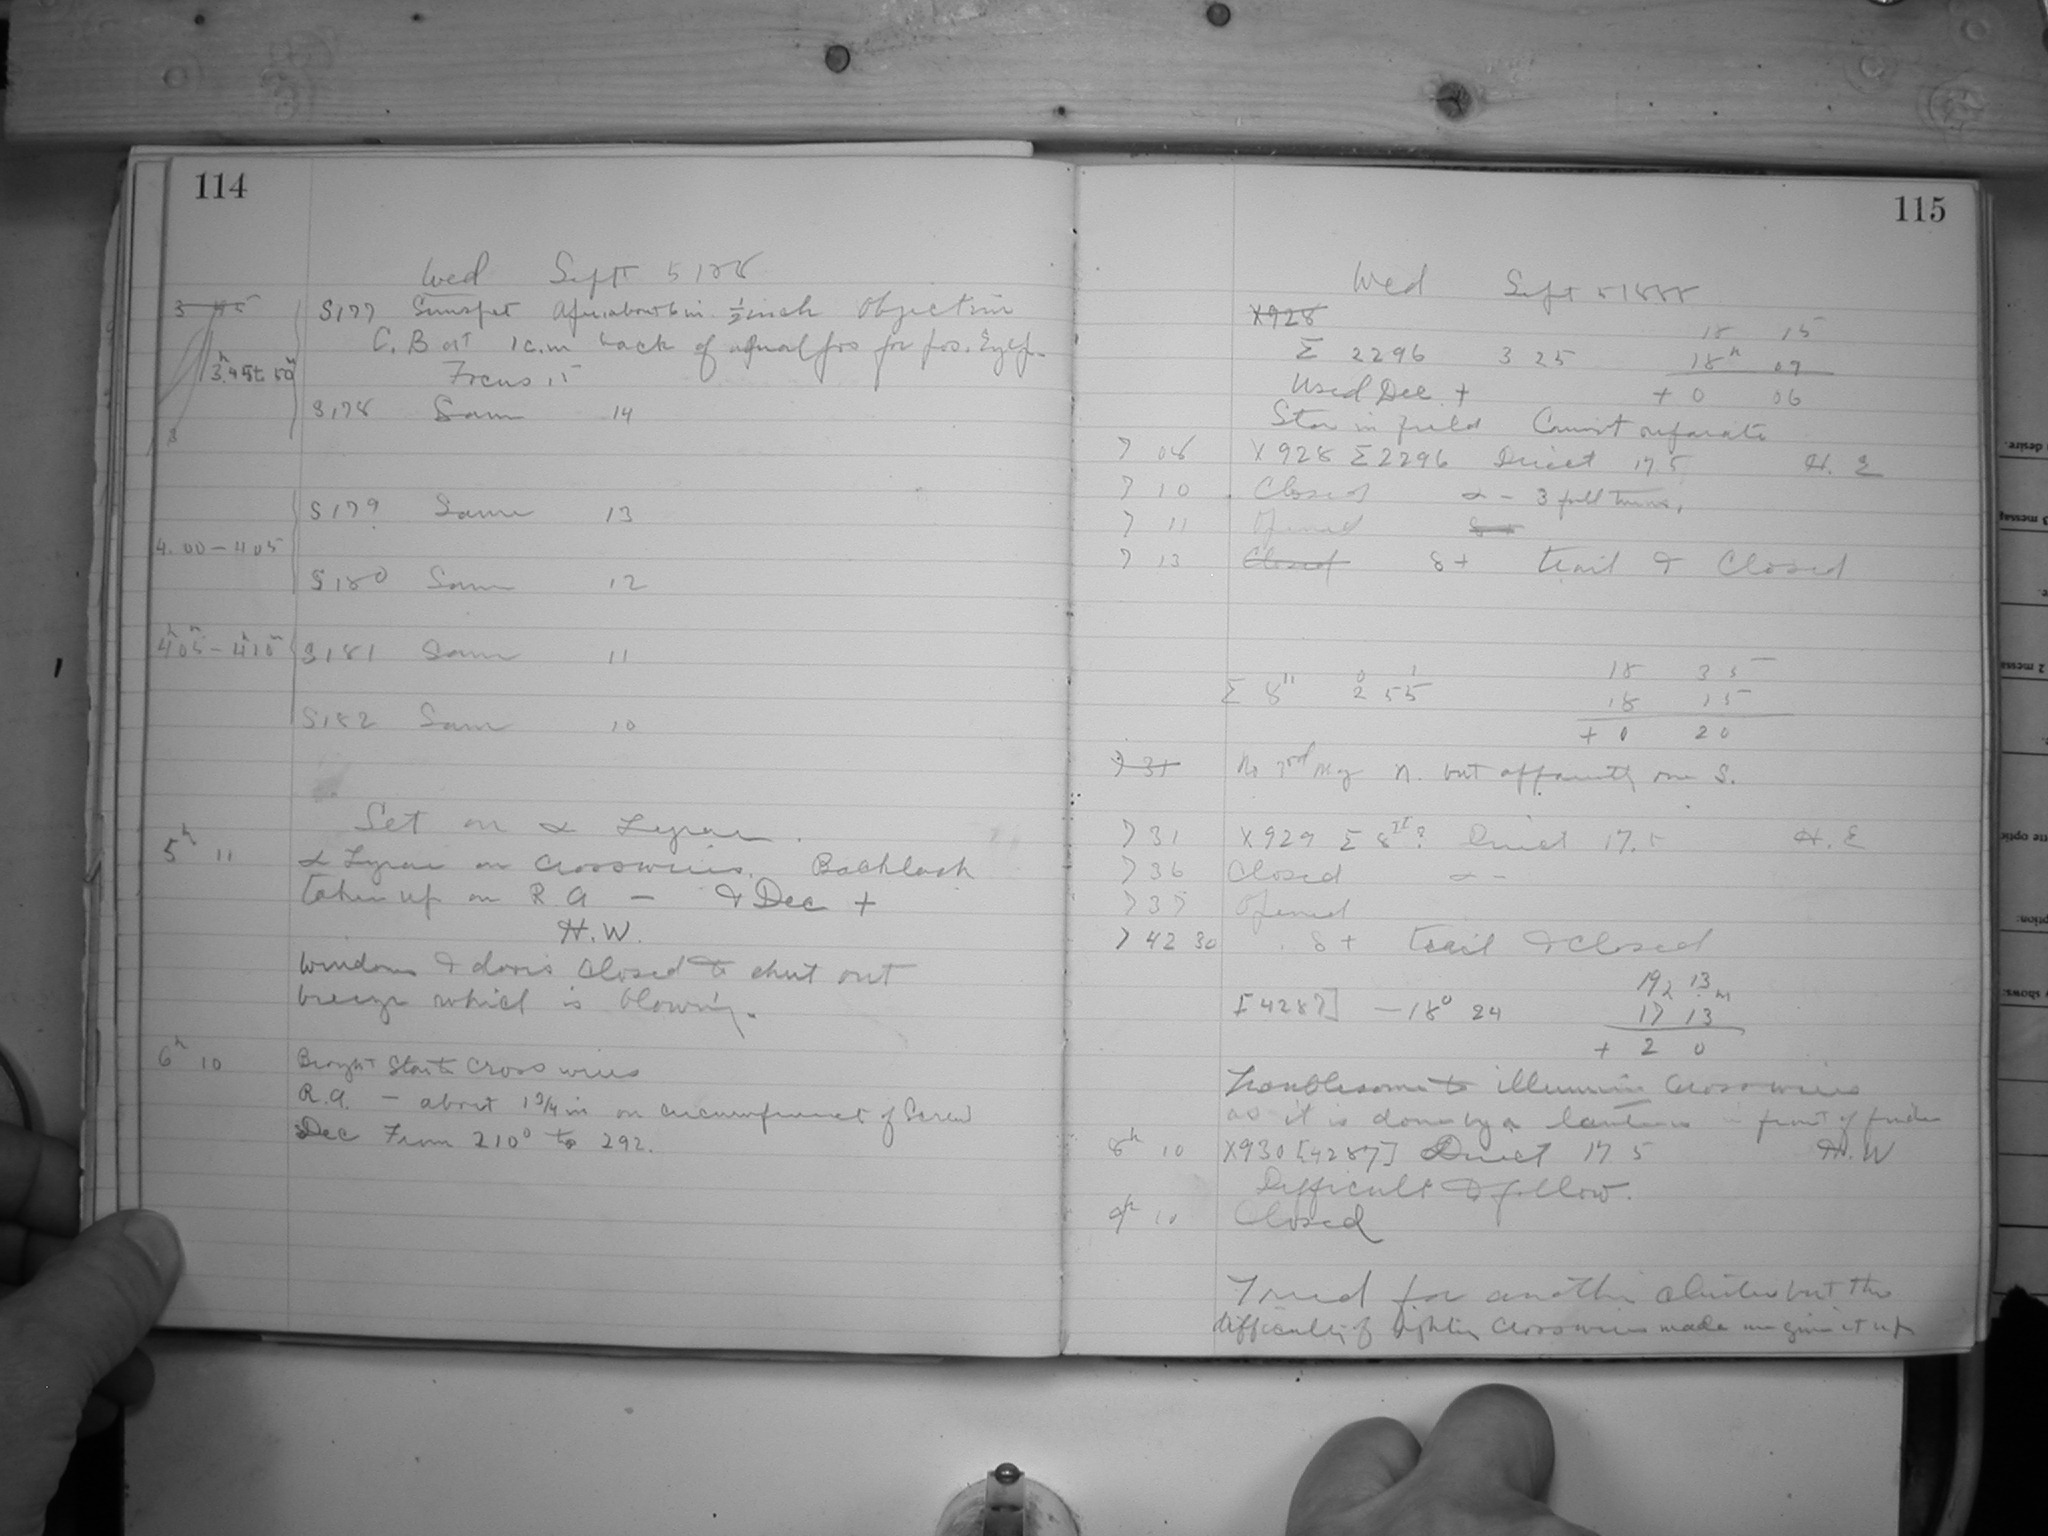 114
Wed Sept 5 188
3 45
S177 Sunspot about 6 in. 1/2 inch Objective
C. B at 1 c.m back of usual pos for pos. Eyep.
3h 45 to 50m
Focus 15
S178 Same 14
S179 Same 13
4.00 - 4 05
S180 Same 12
4h 05m - 4h 10m S181 Same 11
S182 Same 10
Set on α Lyrae.
5h 11 α Lyrae on crosswires. Backlash
taken up on R A - & Dec +
H.W.
Windows & doors closed to shut out
breeze which is blowing.
6h 10 Brought Star to Cross wires
R.A. - about 1 3/4 in on circumference of Screw
Dec From 210° to 292.
115
Wed Sept 5 1888
X928
18 15
Σ 2296 3 25 18h 09
Used Dec. + + 0 06
Star in field Cannot separate
7 08 X928 Σ2296 Direct 17 5 H. E
7 10 Closed α - 3 full turns,
7 11 Opened δ +
7 13 Closed δ+ trail & Closed
18 35
Σ 8" 2° 55' 18 15
+ 0 20
7 31 No 3rd Mag n. but apparently one S.
7 31 X929 Σ 8II? Direct 17.5 H. E
7 36 Closed α -
7 37 Opened
7 42 30 δ+ trail & Closed
19h 13m
[4287] -18° 24 17 13
+ 2 0
Troublesome to illumine Crosswires
as it is done by a lantern in front of finder
8h 10 X930 [4287] Direct 17 5 H.W
Difficult to follow.
9h 10 Closed
Tried for another cluster but the
difficulty of lighting Crosswires made me give it up